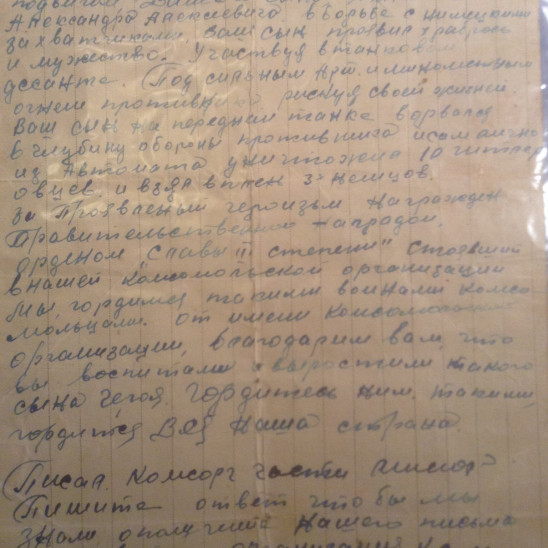 подвигом Вашего
Александра Алексеевича. в борьбе с немецкими
захватчиками. Ваш сын проявил храбрость
и мужество. Участвуя в танковом
дссанте. (Под сильным Арт. и минометным
огнем противника рискуя своей жизней.
Ваш сын на переднем танке ворвался
в глубину обороны противника и сам лично
из Автомата уничтожил 10 гитлер
овцев и взял в плен 3 немцов.
за проявленый героизьм награжден
Правительственной наградой.
орденом "Славы III степени" стоявший
в нашей комсомольской организации
мы, гордимся такими воинами комсо
мольцами. от имени комсомольской
организации, благодарим вам, что
вы воспитали и выростили такого
сына героя. гордитесь ним. такими,
гордится вся наша страна.
(Писал. Комсорг части
(Пишите ответ что бы мы
знали о получение нашего письма
организация